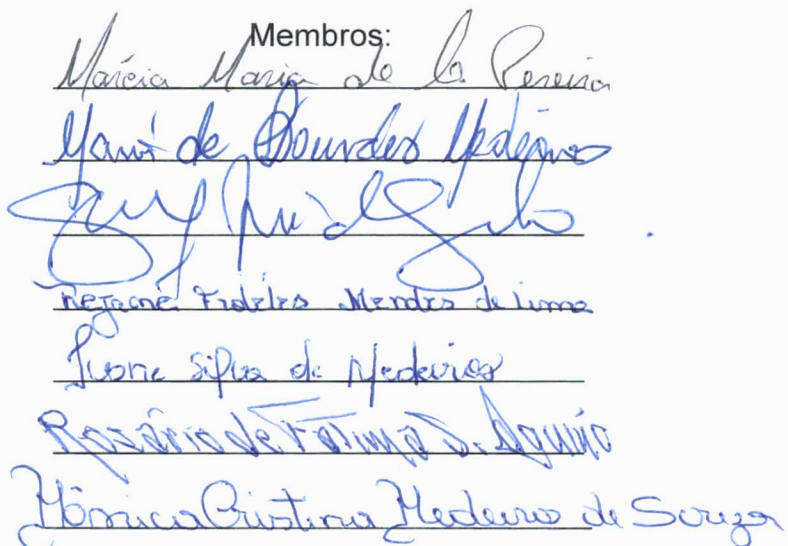 Membros:
Márcia Maria de la Pereira
Maria de Lourdes Medeiros
Rejane Fidelis Mendes de Lima
Ivone Silva de Medeiros
Rosário de Fátima S. Aquino
Mônica Cristina Medeiros de Souza